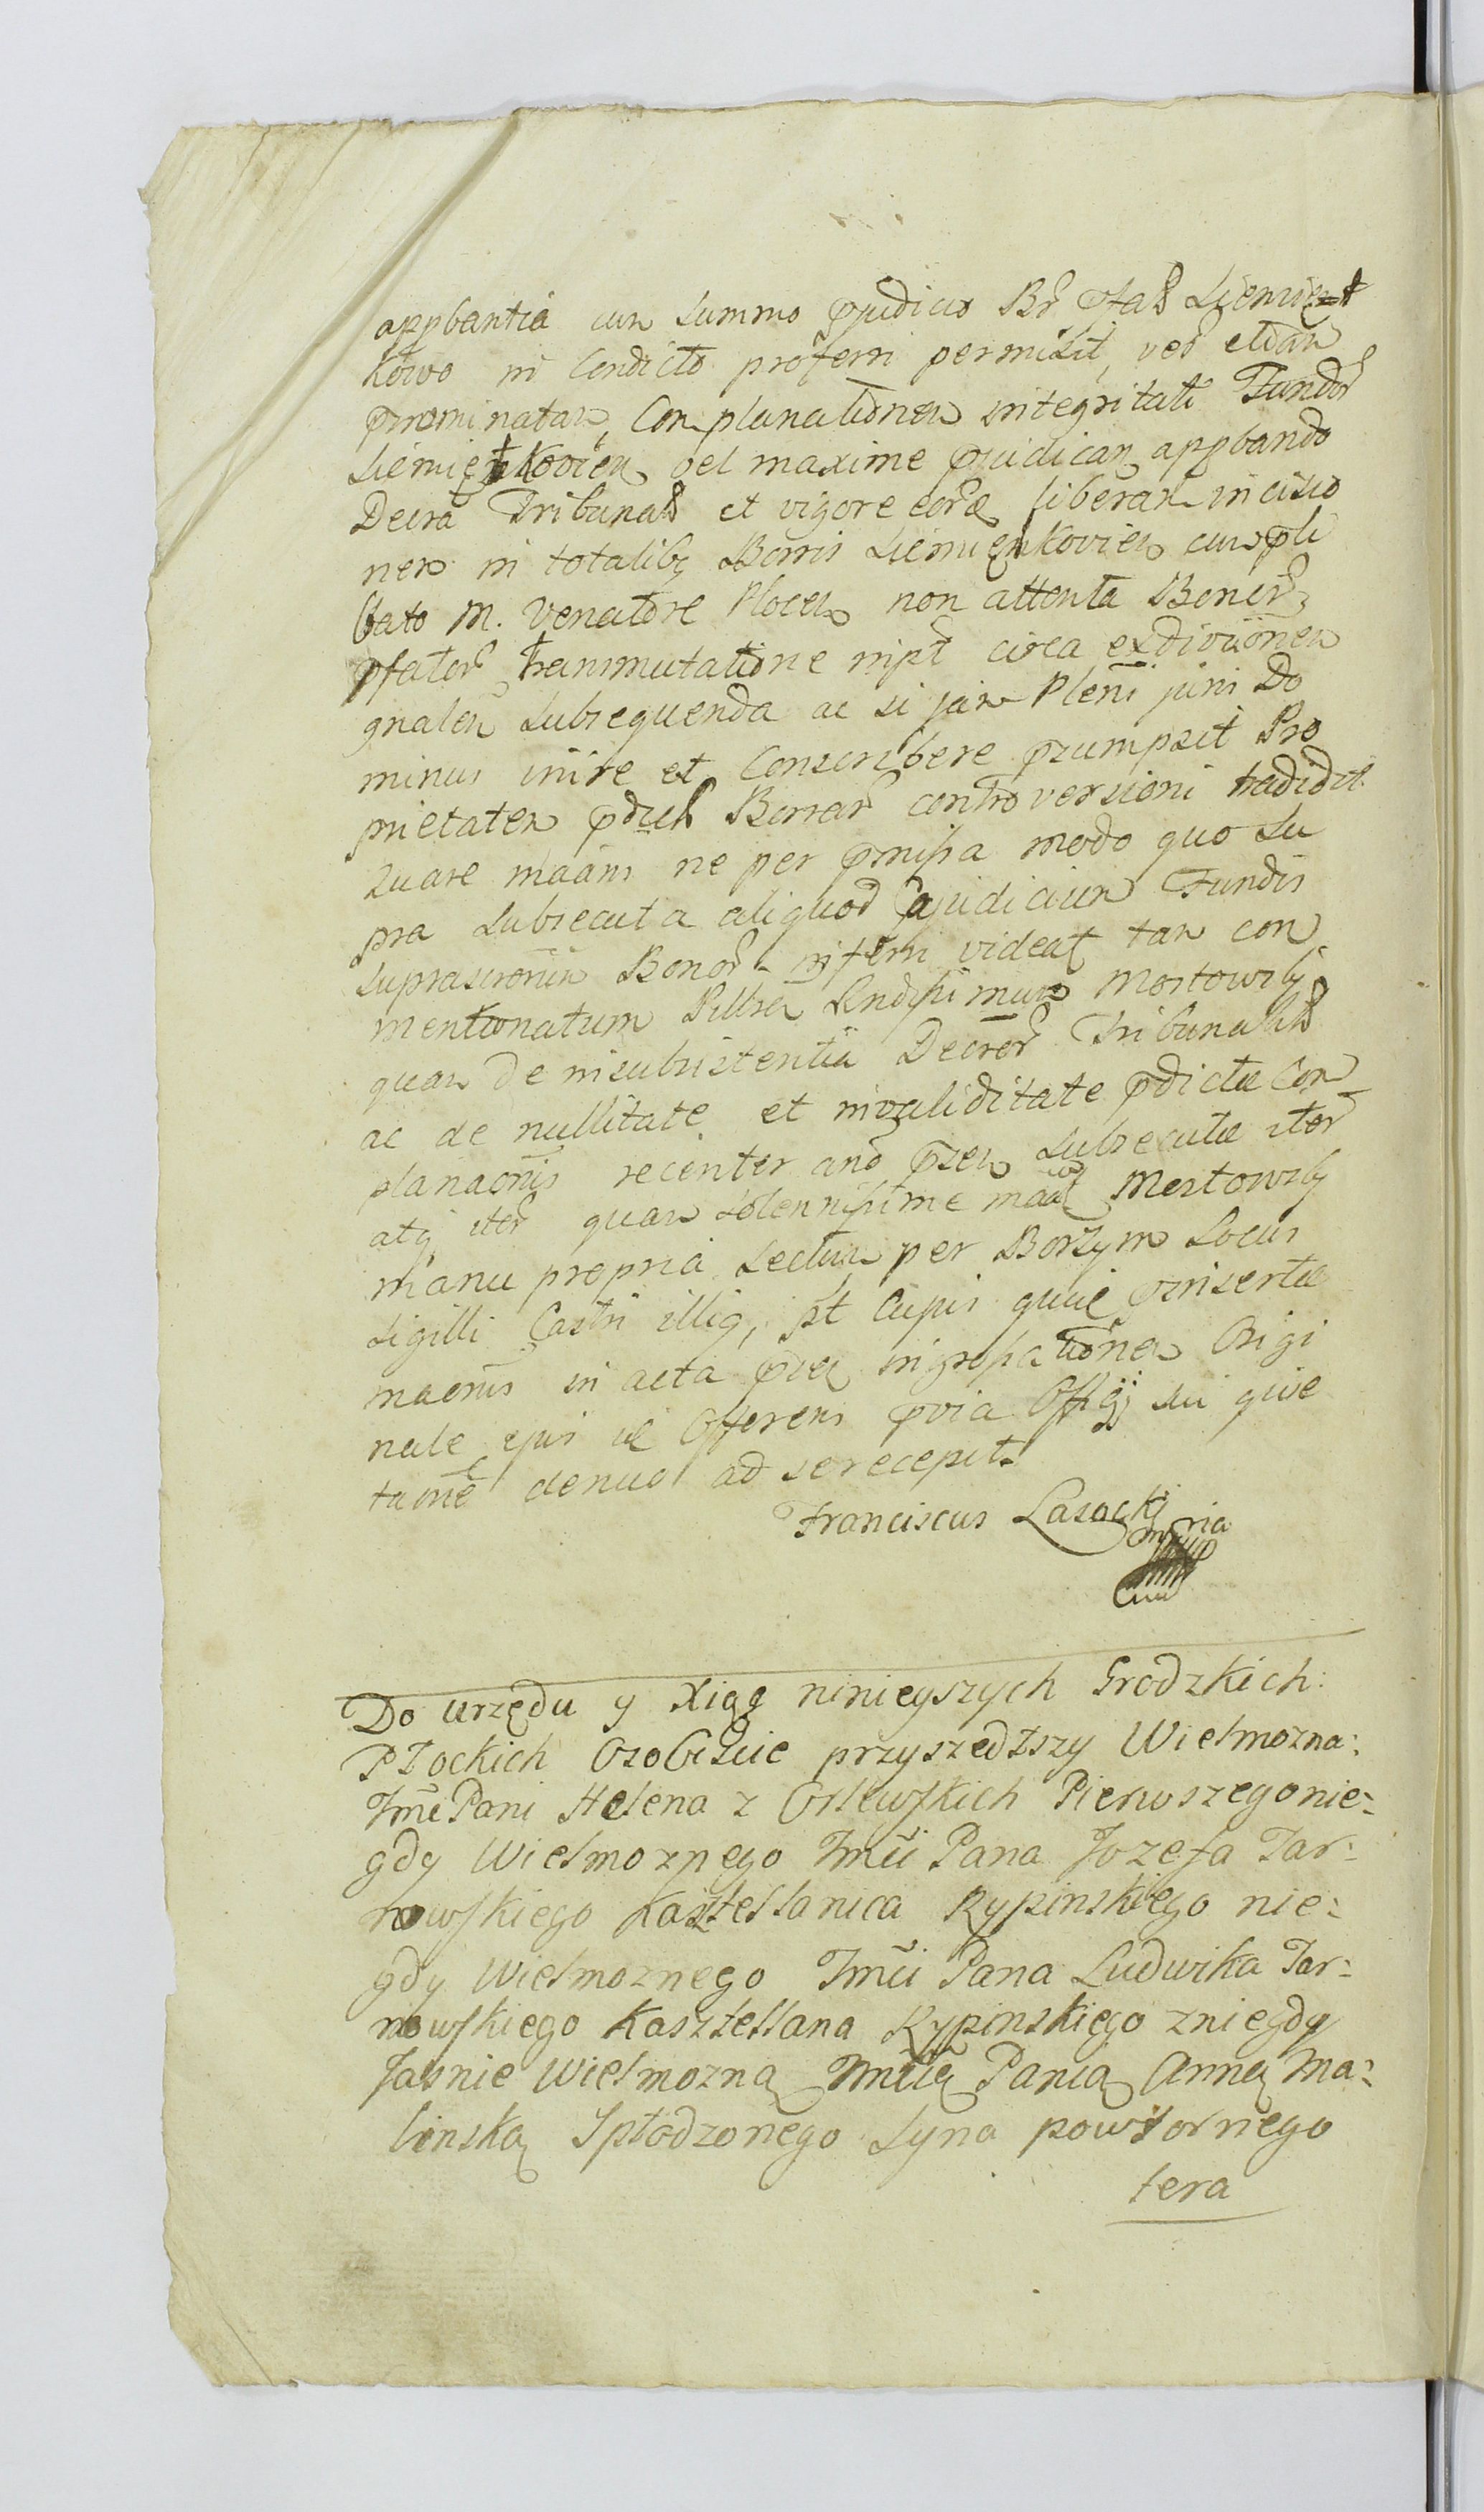 appbantia cum summo pjudicio Br̃ ptaɫ Siemięt
kowo in Condicto proferri permisit, ver̃ etiam
prnominatam, Complanationem integritati Fundor̃
Siemiętkovien vel maxime pjudicam appbando
Decra Tribunaɫ et vigore eor̃ liberam incisio
nem in totalibg Bonis Siemiętkovien cum pli
bato M. Venatore Plocen non attenta Bonor̃
pfator̃ transmutatione nipt circa exdivisionem
gnalem subsequenda ac si jam Pleni juris Do
minus inire et Conscribere prsumpsit Pro
prietatem Bonar̃ controversioni tradidit
Quare maãns ne per pmissa modo quo Su
pra subsecuta aliquod pjudicium Fundis
suprascrõrum Bonor̃ inferri videat tam con
mentionatum Mostowsky
quam de insubsistentia Decror̃ Tribunaɫ
ac de nullitate et invaliditate pdictæ Com
planaõnis recenter anõ pzen subsecutæ iter̃
atq iter̃ quam solennissime maãt Mostowsky
manu propria Sectum per Borzym Locus
Sigilli Castri illig, pt Cujus quidẽ psinsertæ
maõnis in acta pzen ingrossationem Origi
nale ejus id Offerens pvia Offii sui quie
taõne denuo ad se recepit.
Franciscus Lasocki mpria
Do urzędu y Xiąg ninieyszych Grodzkich:
Płockich Osobiscie przyszedłszy Wielmozna:
Jmci Pani Helena z Orłewskich Pierwszego nie:
gdy Wielmoznego Jmci Pana Jozefa Tar:
nowskiego Kasztellanica Rypinskiego nie:
gdy Wielmoznego Jmci Pana Ludwika Tar:
nowskiego Kasztellana Rypinskiego z niegdy
Jasnie Wielmozną Jmcią Panią Anną Ma:
linską Spłodzonego Syna powtornego
tera